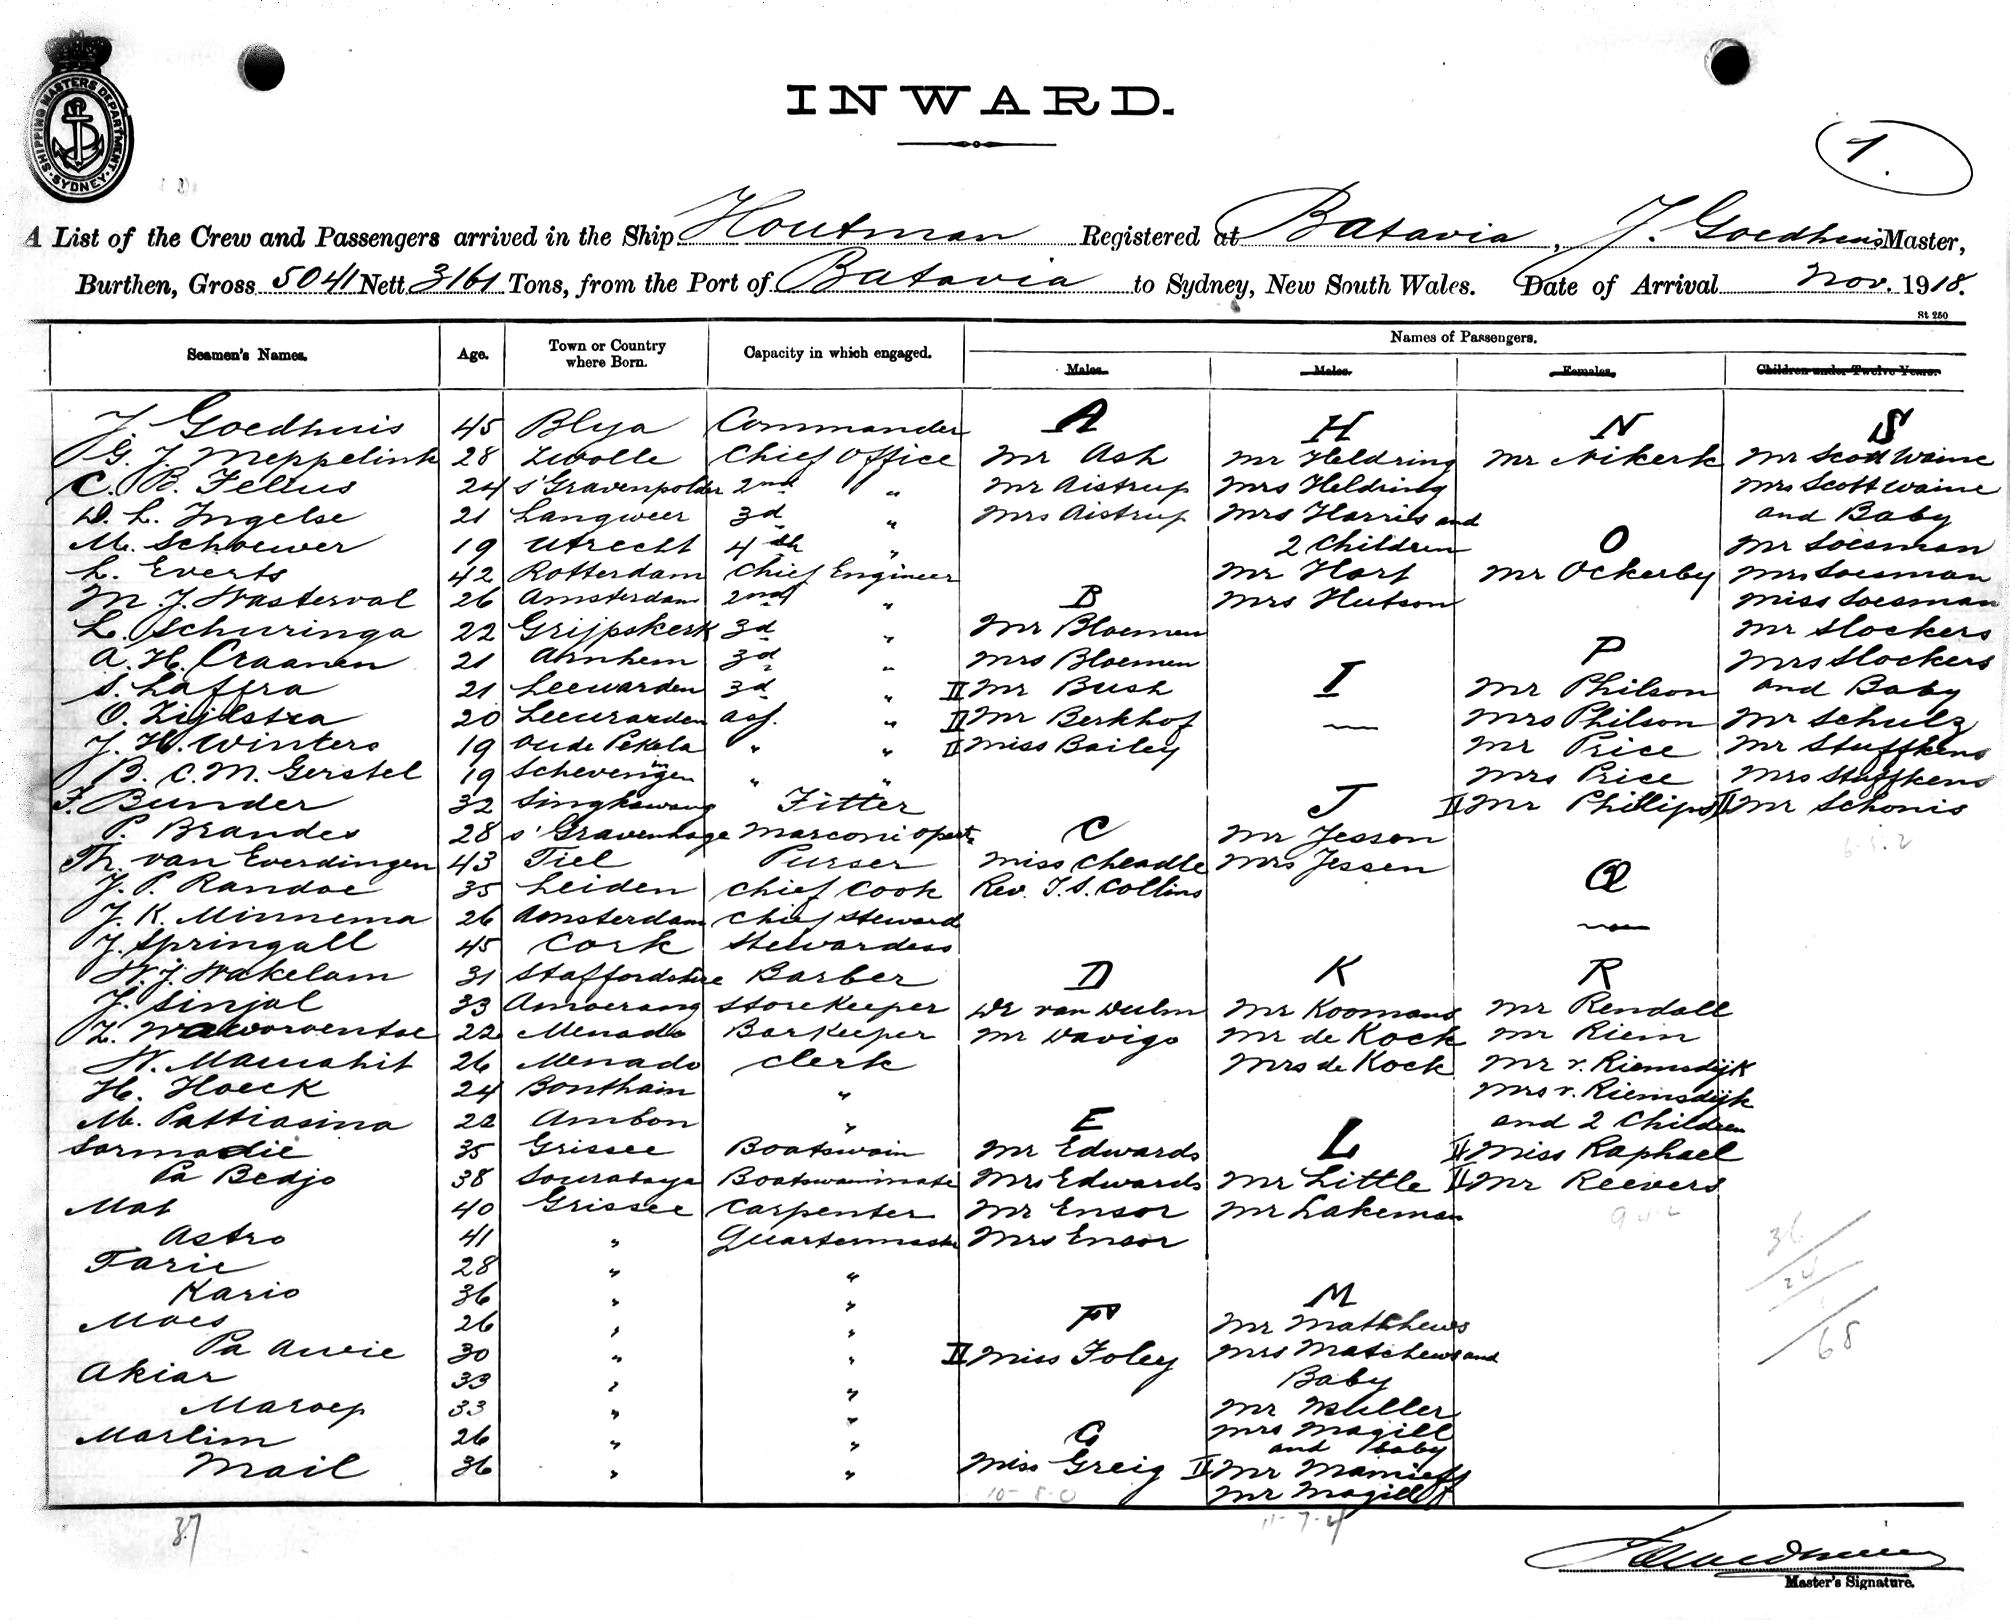 SHIPPING MASTERS DEPARTMENT
SYDNEY
INWARD.
1.
A List of the Crew and Passengers arrived in the Ship Houtman Registered at Batavia, J. Goedhuis Master,
Burthen, Gross 5041 Nett 3161 Tons, from the Port of Batavia to Sydney, New South Wales. Date of Arrival Nov. 1918.
St 250
Seamen's Names. Age. Town or Country where Born. Capacity in which engaged. Names of Passengers.
Males. Males. Females. Children under Twelve Years.
J. Goedhuis 45 Blya Commander A H N S
G. J. Meppelink 28 Zwolle Chief Office Mr Ash Mr Heldring Mr Nikerk Mr Scott Waine
C. B. Fellus 24 s'Gravenpolder 2nd " Mr Aistrup Mrs Heldring Mrs Scott Waine
D. L. Ingelse 21 Langweer 3d " Mrs Aistrup Mrs Harris and and Baby
M. Schouwer 19 Utrecht 4th " 2 Children O Mr Soesman
L. Everts 42 Rotterdam Chief Engineer Mr Hart Mr Ockerby Mrs Soesman
M. J. Wasterval 26 Amsterdam 2nd " B Mrs Hutson Miss Soesman
L. Schuringa 22 Grijpskerk 3d " Mr Bloemen Mr Slockers
A. H. Craanen 21 Arnhem 3d " Mrs Bloemen P Mrs Slockers
S. Laffra 21 Leewarden 3d " II Mr Bush I Mr Philson and Baby
O. Zijlstra 20 Leeuwarden ass. " II Mr Berkhof — Mrs Philson Mr Schulz
J. H. Winters 19 Oude Pekela " " II Miss Bailey Mr Price Mr Stuffkens
B. C. M. Gerstel 19 Scheveningen " " Mrs Price Mrs Stuffkens
F. Bunder 32 Singkawang Fitter J II Mr Phillips II Mr Schonis
P. Brandes 28 s'Gravenhage Marconi Opert. C Mr Jesson
Th. van Everdingen 43 Tiel Purser Miss Cheadle Mrs Jessen
J. P. Randoe 35 Leiden Chief Cook Rev. T. S. Collins Q
J. K. Minnema 26 Amsterdam Chief Steward —
J. Springall 45 Cork Stewardess
W. J. Wakelam 31 Staffordshire Barber D K R
J. Sinjal 33 Amoerang Storekeeper Dr van Dulm Mr Koomans Mr Rendall
Z. Waworoentoe 22 Menado Barkeeper Mr Davigo Mr de Kock Mr Riem
W. Mawahit 26 Menado Clerk Mrs de Kock Mr v. Riemsdijk
H. Hoeck 24 Bonthain " Mrs v. Riemsdijk
M. Pattiasina 22 Ambon " E and 2 Children
Sarmadie 35 Grissee Boatswain Mr Edwards L II Miss Raphael
Pa Bedjo 38 Sourabaya Boatswainmate Mrs Edwards Mr Little II Mr Reevers
Mat 40 Grissee Carpenter Mr Ensor Mr Lakeman
Astro 41 " Quartermaster Mrs Ensor
Tarie 28 " "
Kario 36 " " M
Moes 26 " " F Mr Matthews
Pa Awie 30 " " II Miss Foley Mrs Matchews and
Akiar 33 " " Baby
Maroep 33 " " Mr Muller
Marlim 26 " " G Mrs Magill and baby
Mail 36 " " Miss Greig II Mr Mamieff
Mr Magill
10-8-0
11-7-4
6-5-2
9-4-2
36
24
68
37
Master's Signature.